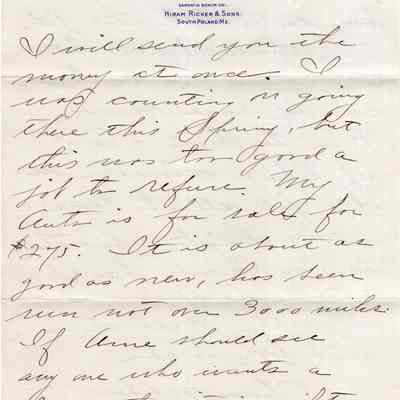 HIRAM RICKER & SONS.
SOUTH POLAND, ME.
I will send you the
money at once. I
was counting on going
there this Spring, but
this was too good a
job to refuse. My
Auto is for sale for
$275. It is about as
good as new, has been
run not over 3000 miles.
If Arne should see
any one who wants a